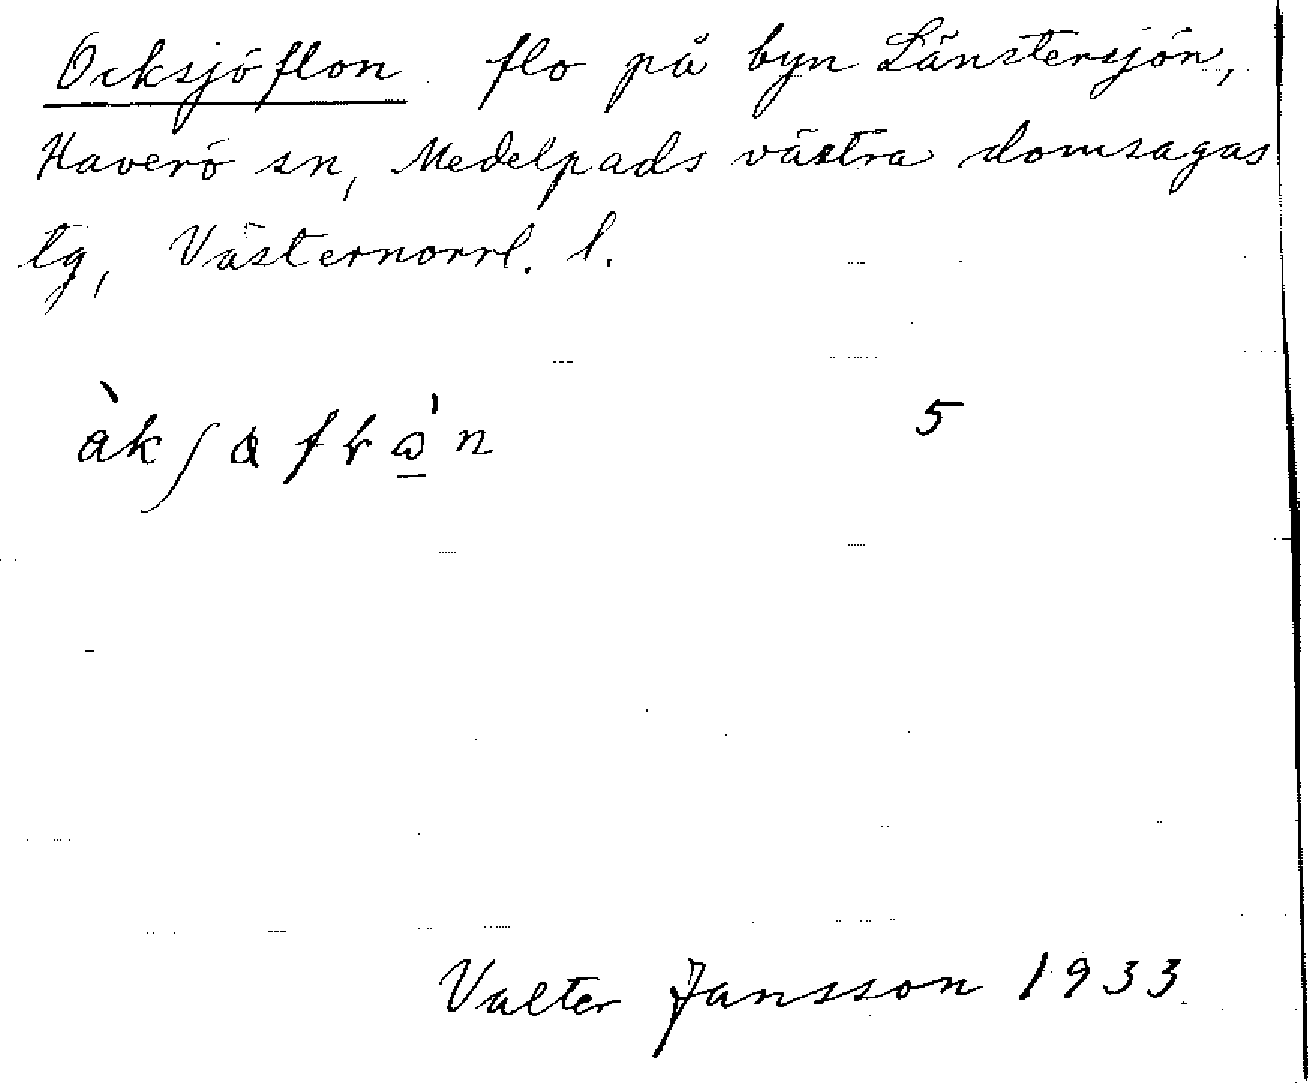 Ocksjöflon flo på byn Länstersjön,
Haverö sn, Medelpads västra domsagas
tg, Västernorrl. l.
5
Valter Jansson 1933